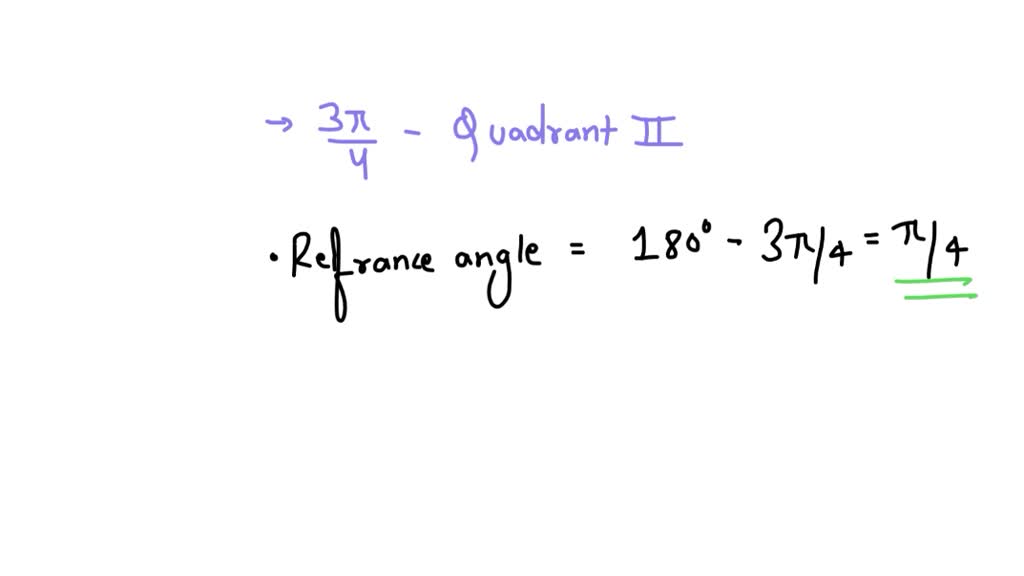 → 3π/4 - Quadrant II
• Refrance angle = 180° - 3π/4 = π/4